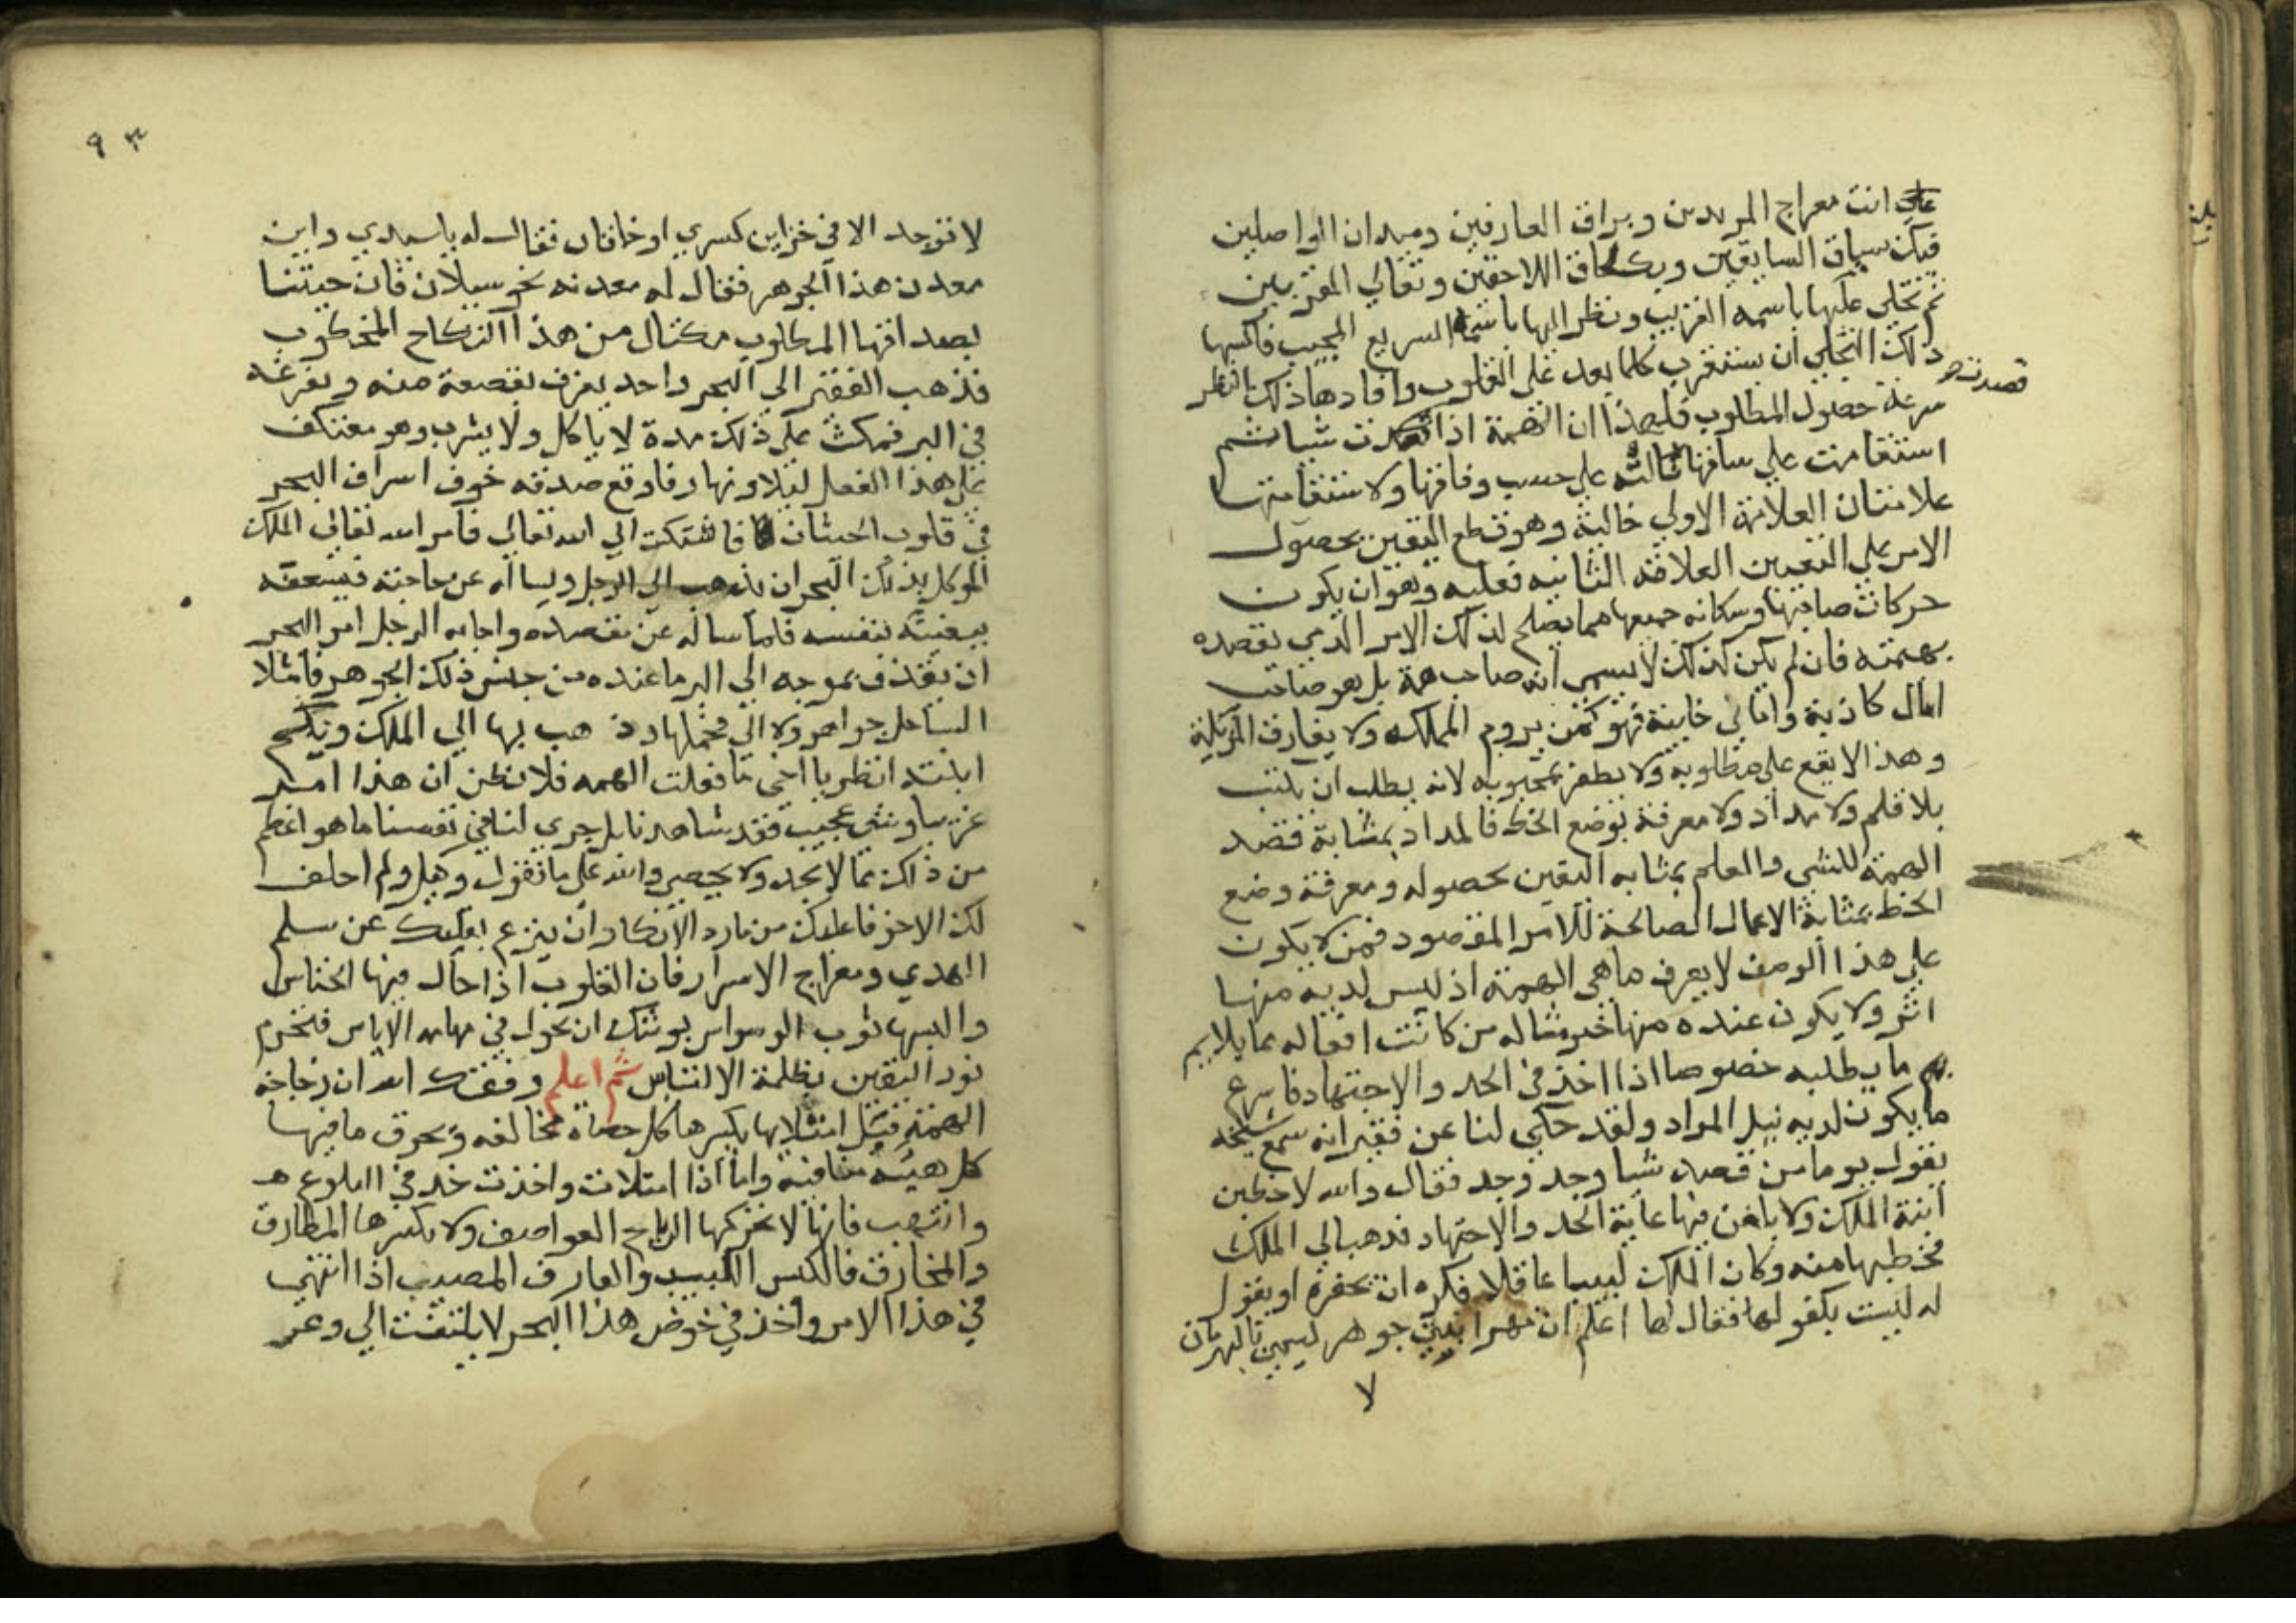 علي انت معراج المريدين وبراق العارفين وميدان الواصلين
فيك سباق السابقين وبك لحاق اللاحقين وتعالي المقربين
ثم تجلي عليها باسمه القريب ونظر اليها باسمه السريع المجيب فاكسبها
ذلك التجلي ان يستقرب كلما بعد علي القلوب وافادها ذلك النظر
سرعة حصول المطلوب فلهذا ان الهمة اذا قصدت شيا ثم
قصدت
استقامت علي ساقها نالته علي حسب وفاقها ولاستقامتها
علامتان العلامة الاولي حالية وهو قطع اليقين بحصول
الامر علي التعيين العلامة الثانيه فعليه وهو ان يكون
حركات صاحبها وسكاته جميعها مما يصلح لذلك الامر الذي يقصده
بهمته فان لم يكن كذلك لا يسمي انه صاحب همة بل هو صاحب
امال كاذبة واماني خايبة فهو كمن يروم المملكه ولا يفارق المزبلة
وهذا لا يقع علي مطلوبه ولا يظفر بمحبوبه لانه يطلب ان يكتب
بلا قلم ولا مداد ولا معرفة بوضع الخط فالمداد بمثابة قصد
الهمة للشي والعلم بمثابه اليقين بحصوله ومعرفة وضع
الخط بمثابة الاعمال الصالحة للامر المقصود فمن لا يكون
علي هذا الوصف لا يعرف ما هي الهمة اذ ليس لديه منها
اثر ولا يكون عنده منها خبر مثاله من كانت افعاله بما يلايم
ما يطلبه خصوصا اذا اخذ في الجد والاجتهاد فاسرع
ما يكون لديه نيل المراد ولقد حكي لنا عن فقير انه سمع شيخه
يقول يوما من قصد شيا وجد وجد فقال والله لاخطبن
ابنة الملك ولابلغن فيها غاية الجد والاجتهاد فذهب الي الملك
فخطبها منه وكان الملك لبيبا عاقلا فكره ان يحقره او يقول
له لست بكفو لها فقال لها اعلم ان مهر ابنتي جوهر ليسمي بالبهرمان
لا
٩٣
لا توجد الا في خزاين كسري او خاقان فقال له يا سيدي واين
معدن هذا الجوهر فقال له معدنه بحر سيلان فان جيتنا
بصداقها المطلوب مكنال من هذا النكاح المخطوب
فذهب الفقير الي البحر واحد يغرف بقصعة منه ويفرغه
في البر فمكث علي ذلك مدة لا ياكل ولا يشرب وهو معتكف
علي هذا الفعل ليلا ونهارا فاوقع صدقه خوف اسراف البحر
في قلوب الحيتان فاشتكت الي الله تعالي فامر الله تعالي الملك
الموكل بذلك البحر ان يذهب الي الرجل ويساله عن حاجته فيسعفه
ببغيته بنفسه فلما ساله عن مقصده واجابه الرجل امر البحر
ان يقذف بموجه الي البر ما عنده من جنس ذلك الجوهر فامتلا
الساحل جواهر ولالي فحملها وذهب بها الي الملك ونكح
ابنته انظر يا اخي ما فعلت الهمه فلا تظن ان هذا امر
غريبا وشي عجيب فقد شاهدنا بل جري لنا في نفسنا ما هو اعظم
من ذلك مما لا يحد ولا يحصي والله علي ما نقول وكيل ولم احلف
لك الا خوفا عليك من مارد الانكار ان ينزع بقلبك عن سلم
الهدي ومعراج الاسرار فان القلوب اذا جال فيها الخناس
والبسها ثوب الوسواس يوشك ان تحول في مهامه الاياس فتحرم
نور اليقين بظلمة الالتباس ثم اعلم وفقك الله ان زجاجة
الهمة قبل امتلايها يكسرها كل حصاة مخالفه ويحرق ما فيها
كل هيئة منافية واما اذا امتلات واخذت خد في البلوغ
وانتهب فانها لا تحركها الرياح العواصف ولا يكسرها المطارق
والمخارق فالكيس اللبيب والعارف المصيب اذا انتهي
في هذا الامر واخذ في خوض هذا البحر لا يلتفت الي وعر